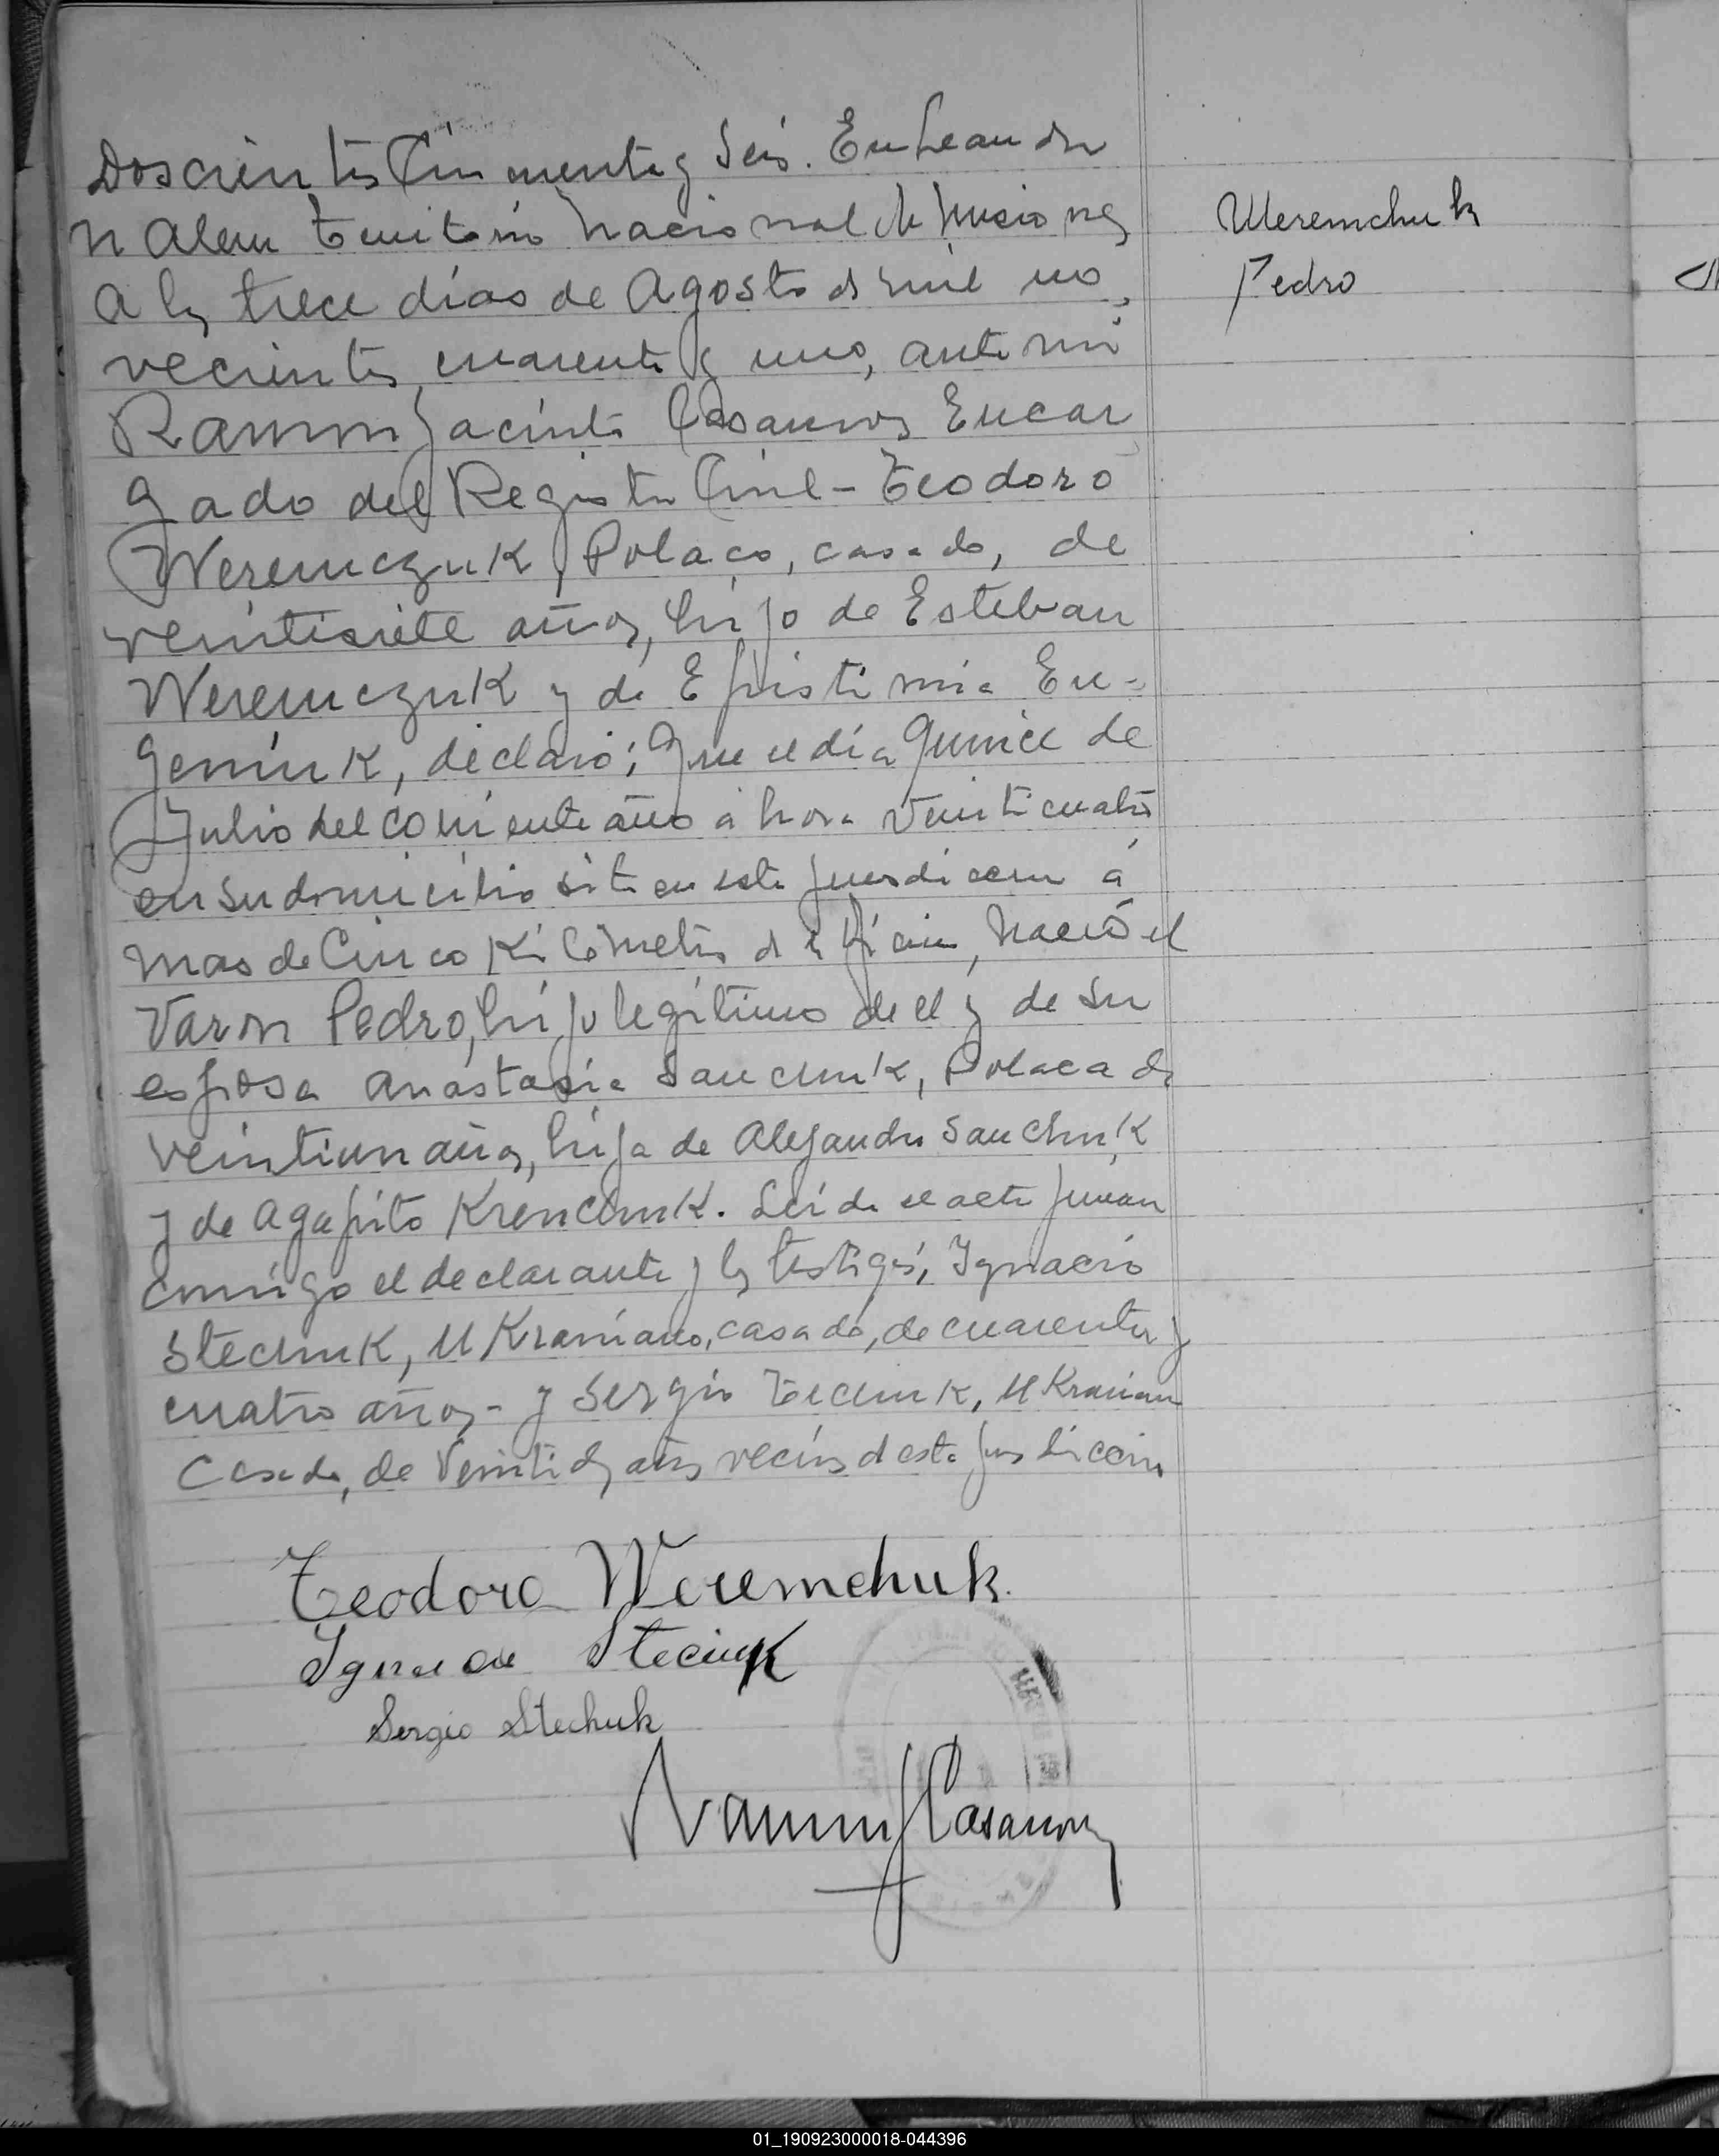 Doscientos Cincuenta y Seis. En Leandro
N Alem Territorio Nacional de Misiones
a los trece días de Agosto de mil no
vecientos cuarenta y uno, ante mi
Ramon Jacinto Casanova Encar
gado del Registro Civil - Teodoro
Weremczuk, Polaco, casado, de
veintisiete años, hijo de Esteban
Weremczuk y de Epistimia Eu-
geniuk, declaró; Que el día Quince de
Julio del corriente año a hora Veinticuatro
en su domicilio sito en esta jurisdiccion á
mas de Cinco Kilómetros de la oficina, Nació el
Varon Pedro, hijo legítimo de el y de su
esposa Anastasia Sauchuk, Polaca de
veintiun años, hija de Alejandro Sauchuk
y de Agapito Krenchuk. Leida el acta firman
conmigo el declarante y los testigos, Ignacio
Stechuk, Ukraniano, casado, de cuarenta y
cuatro años - y Sergio Techuk, Ukraniano
Casado, de Veintidos años vecinos de esta jurisdiccion
Teodoro Weremchuk.
Ignacio Steciuk
Sergio Stechuk
Ramon J Casanova
Weremchuk
Pedro
01_190923000018-044396